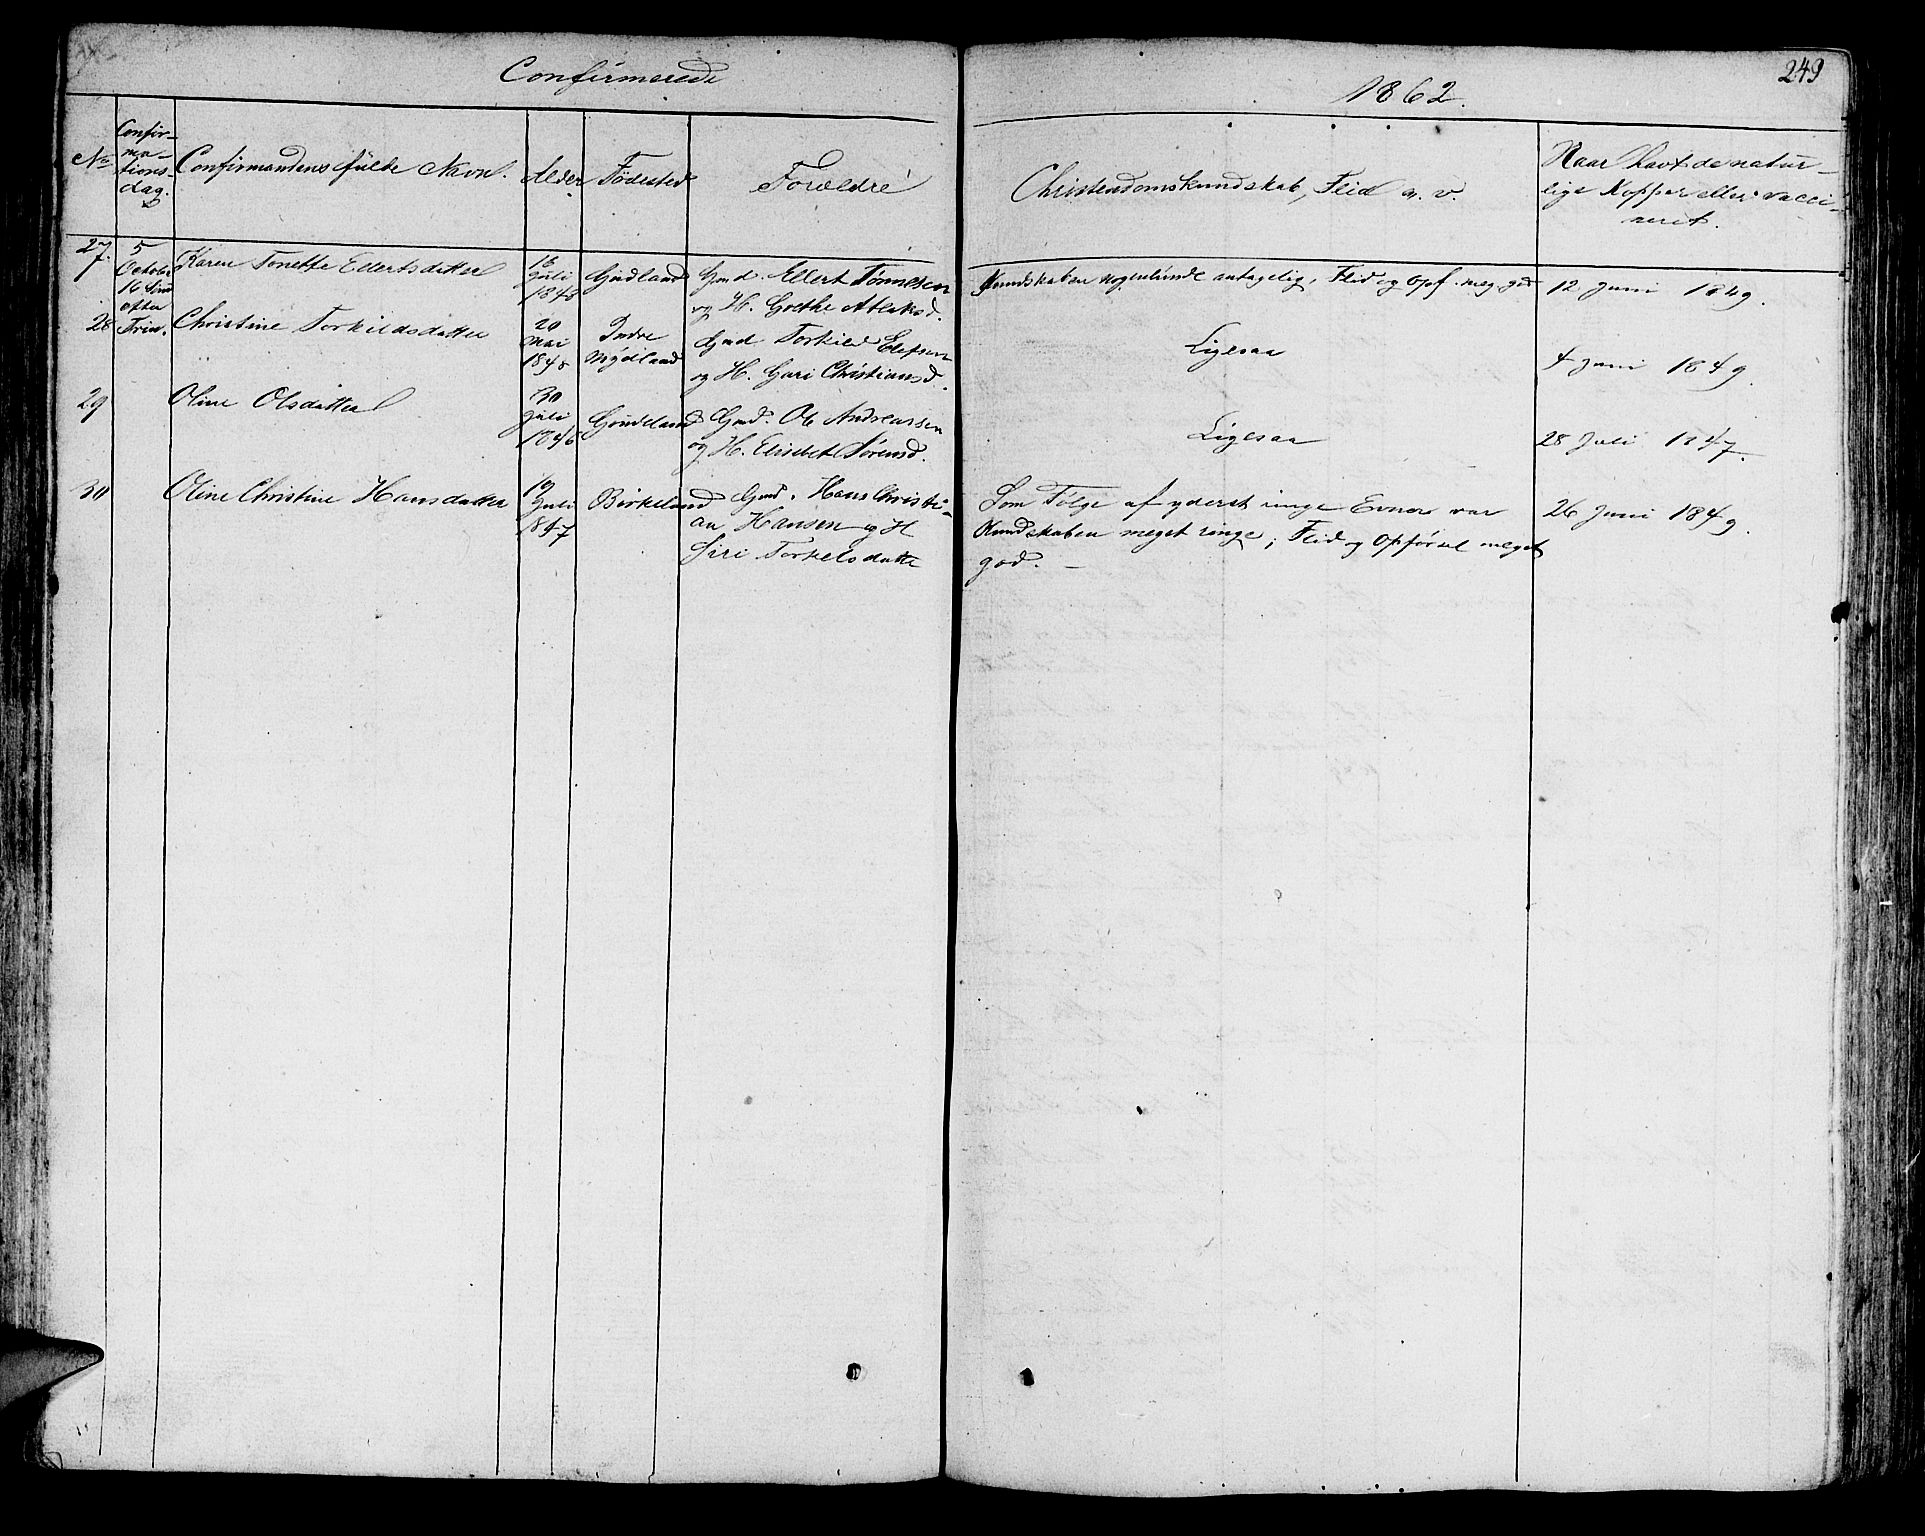 Confirmerede
1862.
249
No
Confir-
ma-
tions-
dag.
Confirmandens fulde Navn.
Alder
Fødested
Forældre
Christendomskundskab, Flid m. v.
Naar havt de natur-
lige Kopper eller vacci-
neret.
27.
5
October
16 Sønd
efter
Trin.
Karen Tonette Ellertsdatter
18
Juli
1848
Gudland
Gmd. Ellert Tønnesen
og H. Grethe Atlaksd.
Kundskaben nogenlunde antagelig, Flid og Opf. meg. god
12 Juni 1849.
28
Christine Torkildsdatter
20
Mai
1848
Indre
Mydland
Gmd Torkild Elefsen
og H. Guri Christiansd.
Ligesaa
4 Juni 1849.
29
Oline Olsdatter
30
Juli
1846
Grudeland
Gmd. Ole Andreassen
og H. Elisebet Sørensd.
Ligesaa
28 Juli 1847.
30
Oline Christine Hansdatter
19
Juli
1847
Birkeland
Gmd. Hans Christi-
an Hansen og H
Siri Torkelsdatte
Som Følge af yderst ringe Evner var
Kundskaben meget ringe; Flid og Opførsel meget
god. -
26 Juni 1849.